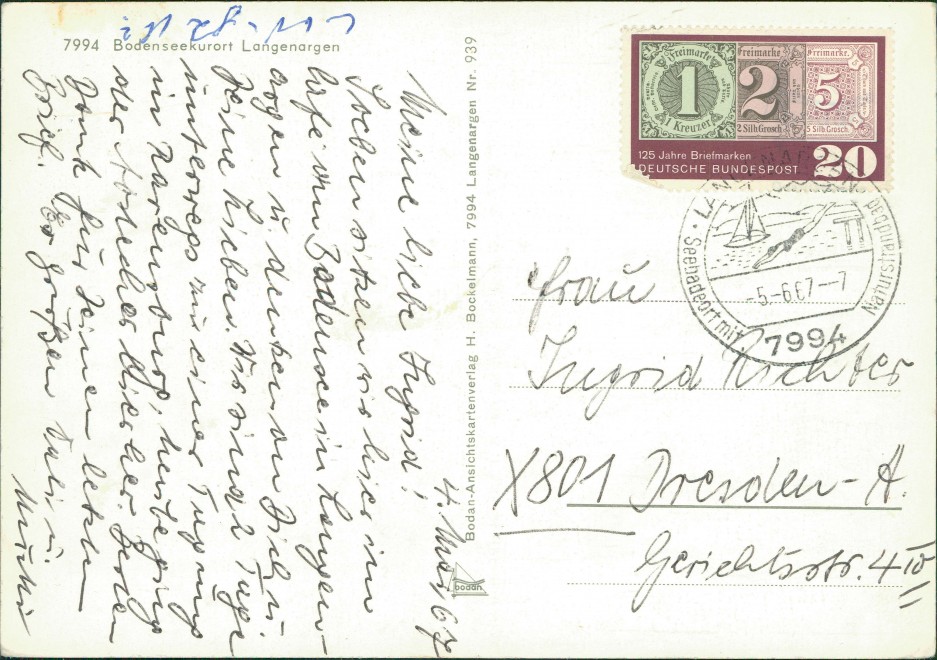 7994 Bodenseekurort Langenargen
4. Mai 67
Meine liebe Ingrid!
Soeben sitzen wir hier im
Kaffe am Bodensee in Langen-
argen u. denken an Dich u.
Deine Lieben. Wir sind 4 Tage
unterwegs zu einer Tagung
in Ravensburg, heute ging
der
Dank für Deinen letzten
Brief. Es grüßen
Bodan-Ansichtskartenverlag H. Bockelmann, 7994 Langenargen Nr. 939
bodan
Freimarke
1
Kreuzer
Freimarke
2
2 Silb.Grosch.
Freimarke.
5
5 Silb.Grosch.
125 Jahre Briefmarken
DEUTSCHE BUNDESPOST
20
LANGENARGEN
Seebadeort mit Naturstrandbad
-5.-6.67--7
7994
Frau
Ingrid Richter
X801 Dresden-A.
Gerichtsstr. 4 IV